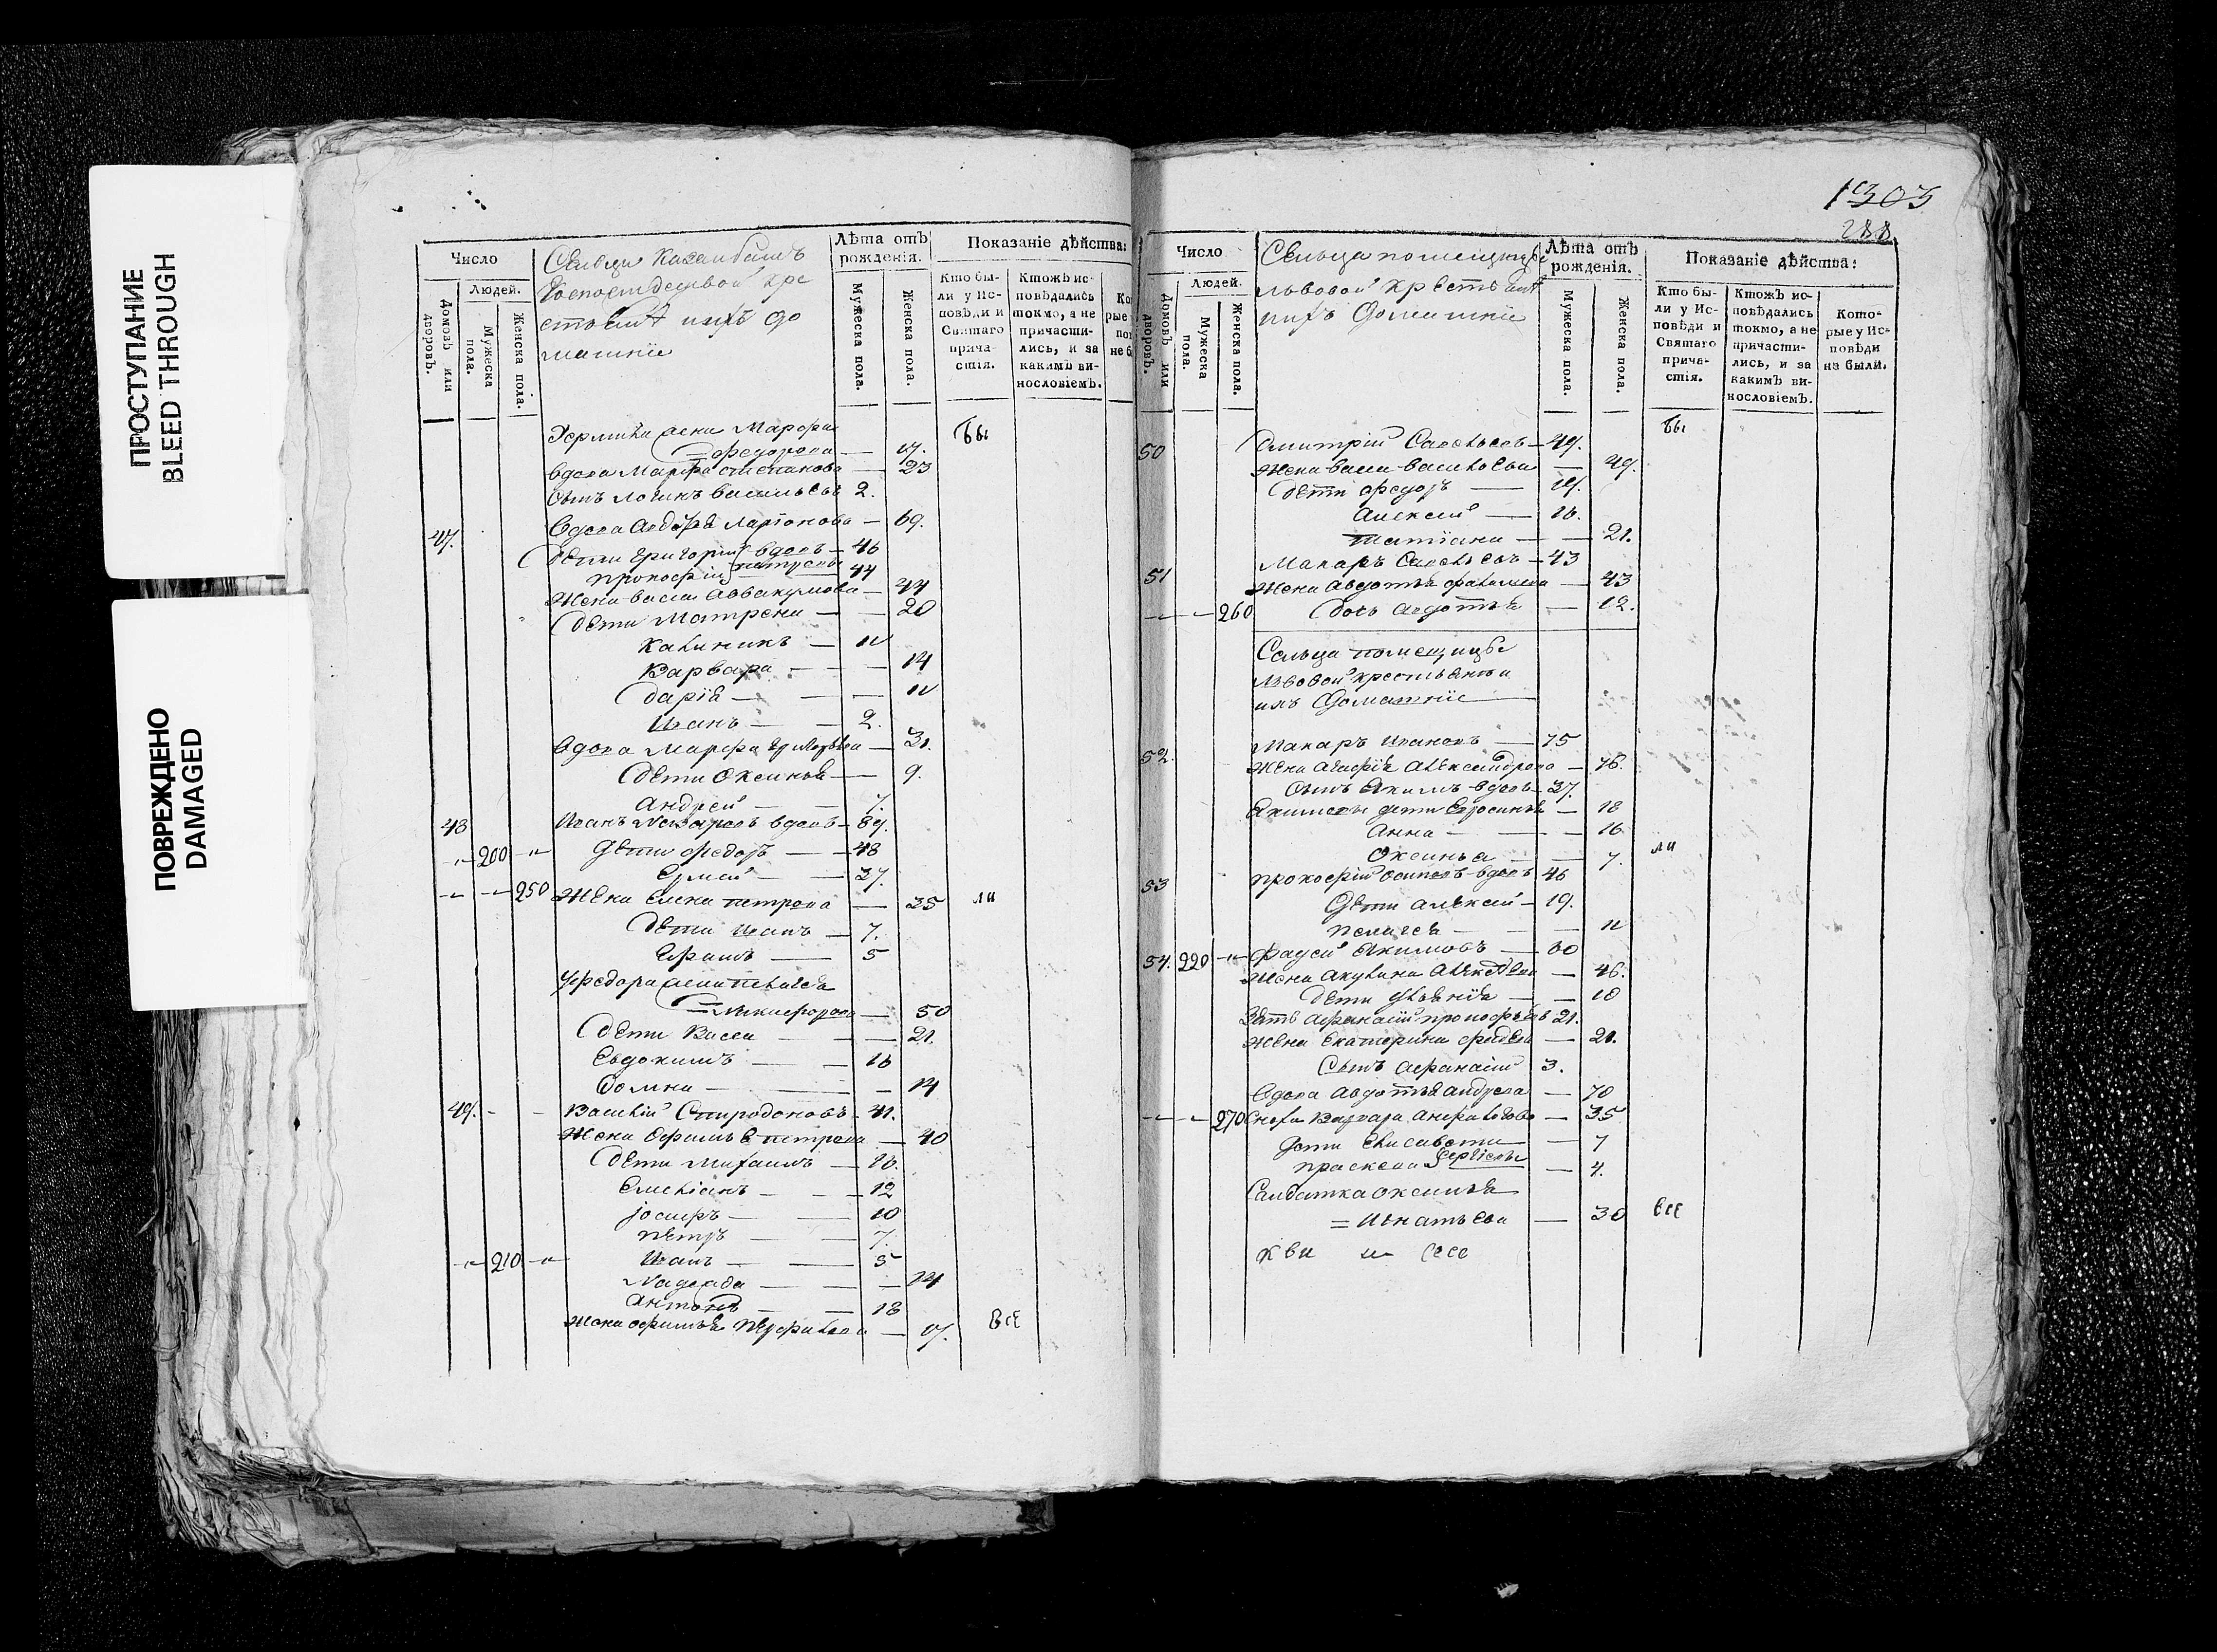 ПРОСТУПАНИЕ
BLEED THROUGH
ПОВРЕЖДЕНО
DAMAGED
Число
Людей.
Домовъ или дворовъ.
Мужеска пола.
Женска пола.
Лѣта отъ рожденія.
Мужеска пола.
Женска пола.
Показаніе дѣйства:
Кто бы-
ли у Ис-
повѣди и
Святаго
прича-
стія.
Ктожъ ис-
повѣдались
токмо, а не
причасти-
лись, и за
какимъ ви-
нословіемъ.
ихъ до
машніи
жена Марфа
Федорова — 17.
вдова Марфа Степанова — 23
сынъ Логинъ Васильевъ 2.
бы
47. Вдова Ларіонова — 69.
Дети Григории вдовъ — 46
прокофій 44
Жена васса Аввакумова — 44
Дети Матрена — 20
Калиникъ — 11
Варвара — 14
Дарія — 11
Иванъ — 2.
вдова Марфа — 31.
Дети Оксинья — 9.
Андрей — 7.
48 Иванъ вдовъ — 69.
200 Дети Федоръ — 48
Ермей — 37.
250 Жена Елена петрова — 35 ли
Дети Иванъ — 7.
Ефимъ — 5
Никифорова — 50
Дети Васса — 21.
Евдокимъ — 16
Домна — 14
49. Василій Спиридоновъ — 41.
Жена Офимья петрова — 40
Дети Михаилъ — 16.
Емеліанъ — 12
Іосифъ — 10
петръ — 7.
210 Иванъ — 5
Надежда — 14
Антонъ — 18
Жена офимья — 17. все
1303
288
Число
Людей.
Домовъ или дворовъ.
Мужеска пола.
Женска пола.
Сельца помещицы
львовой крестьяня
ихъ Домашніи
Лѣта отъ рожденія.
Мужеска пола.
Женска пола.
Показаніе дѣйства:
Кто бы-
ли у Ис-
повѣди и
Святаго
прича-
стія.
Ктожъ ис-
повѣдались
токмо, а не
причасти-
лись, и за
какимъ ви-
нословіемъ.
Кото-
рые у Ис-
повѣди
не были.
50 Дмитрій Савельевъ — 49. бы
Жена васса васильева — 49.
Дети Федоръ — 19.
Алексей — 16.
Татіана — 21.
51 Макаръ Савельевъ — 43
Жена Авдотья — 43
260 Дочь Авдотья — 12.
Сельца помещицы
львовой крестьяня и
ихъ Домашніе
52 Макаръ Ивановъ — 75
Жена Агафія Александрова — 76.
сынъ Якимъ вдовъ — 37.
Якимовы дети Ефросинья — 18
Анна — 16
Оксинья — 7. ли
53 прокофій Осиповъ вдовъ 46
Дети Алексей — 19.
Пелагея — 11
54. 220 Фадей Якимовъ — 60
Жена Акулина Алексеева — 46.
Дети Ульянія — 10
Зять Афанасій прокофьевъ 21.
Жена Екатерина — 21.
Сынъ Афанасий 3.
Вдова Авдотья Андреева — 70
270 Сноха Варвара — 35
Дети Елисавета — 7
праскева Сергіевы — 4.
Салдатка оксинья
= Игнатьева — 30 все